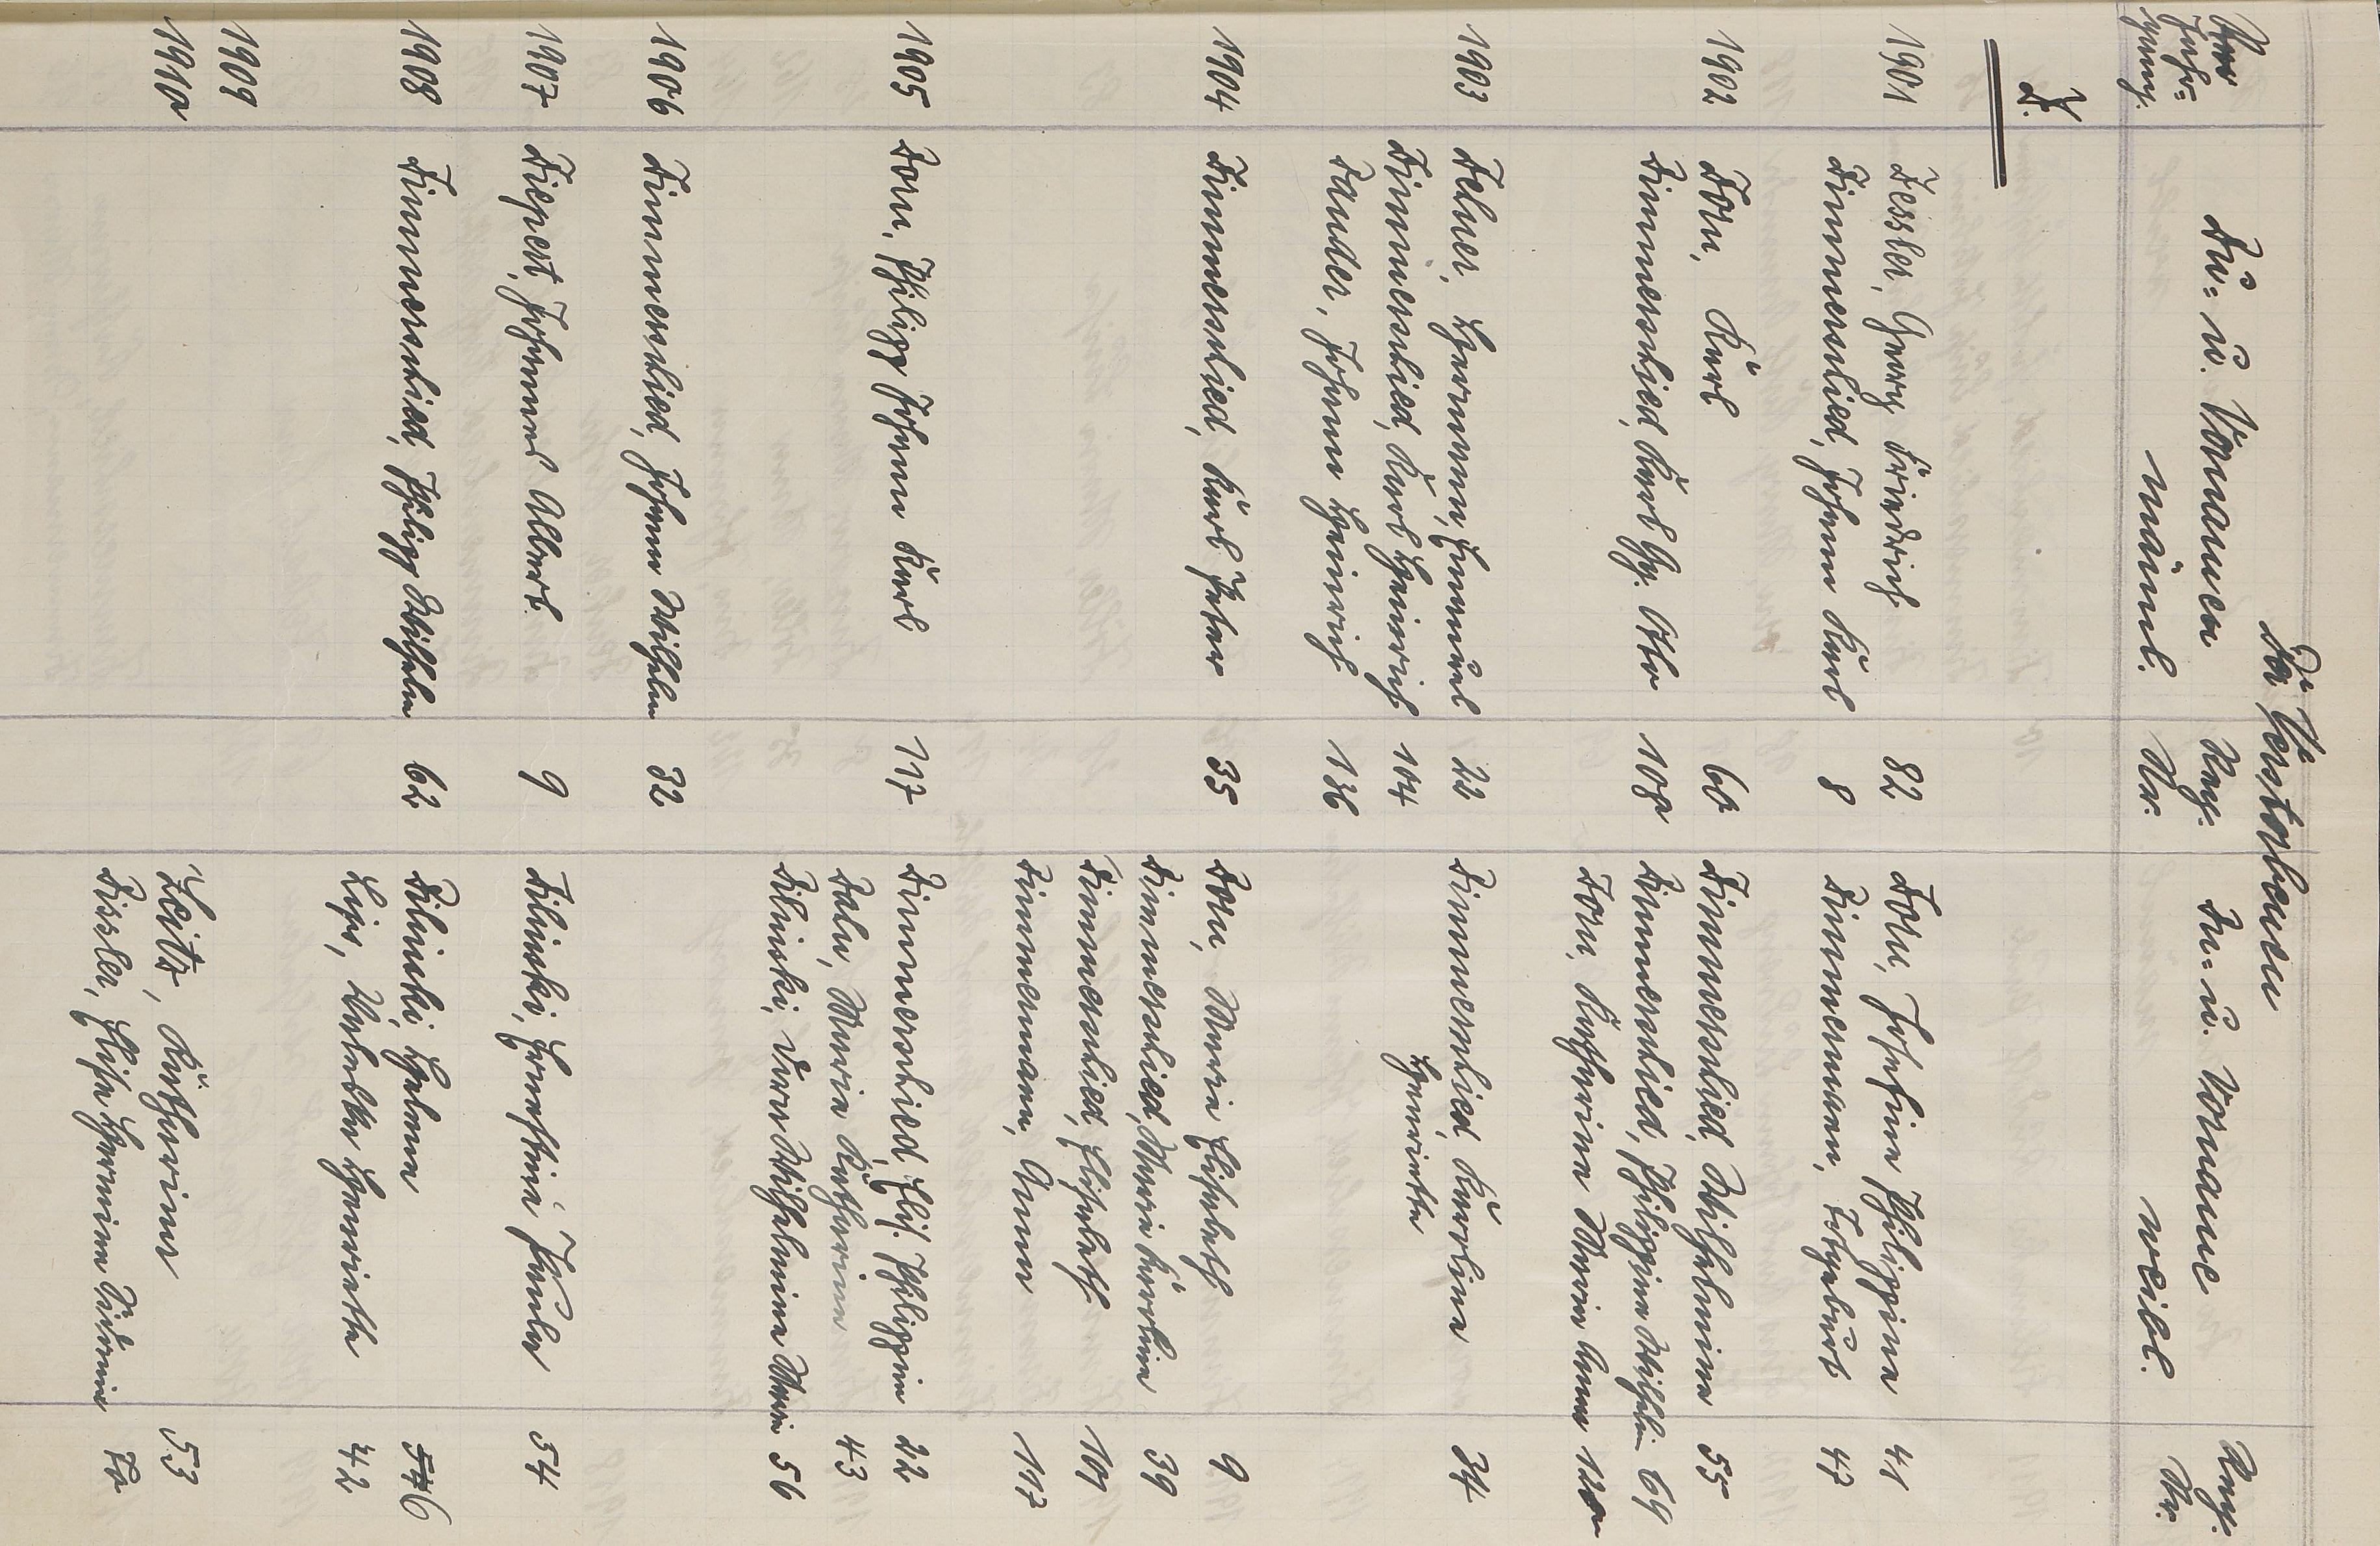 Die Verstorbenen
Jahrgang. Zu- u. Vornamen männl. Reg. Nr. Zu- u. Vorname weibl. Reg. Nr.
Z.
1901 Zessler, Georg Friedrich 82 Zorn, Josefine Philippina 41
Zimmerschied, Johann Karl 8 Zimmermann, Totgeburt 47
1902 Zorn, Karl 60 Zimmerschied, Wilhelmina 55
Zimmerschied, Karl Hch. Otto 108 Zimmerschied, Philippina Wilhelm. 69
Zorn, Katharina Maria Anna
1903 Zehner, Hermann Emanuel 22 Zimmerschied, Karoline 34
Zimmerschied, Karl Heinrich 104 Henriette
Zander, Johann Heinrich 136
1904 Zimmerschied, Karl Peter 35 Zorn, Maria Elisabeth 9
Zimmerschied, Maria Karoline 39
Zimmerschied, Elisabeth 101
Zimmermann, Anna 117
1905 Zorn, Philipp Johann Karl 117 Zimmerschied, Elis. Philippine 22
Zahn, Maria Katharina 43
Zilinski, Dora Wilhelmina Maria 56
1906 Zimmerschied, Johann Wilhelm 32
1907 Ziepest, Johannes Albert. 9 Zilinski, Ernestine Paula 54
1908 Zimmerschied, Philipp Wilhelm 62 Zilinski, Helena 6
Zips, Babette Henriette 42
1909
1910 Zeitz, Katharina 53
Zissler, Elise Hermine